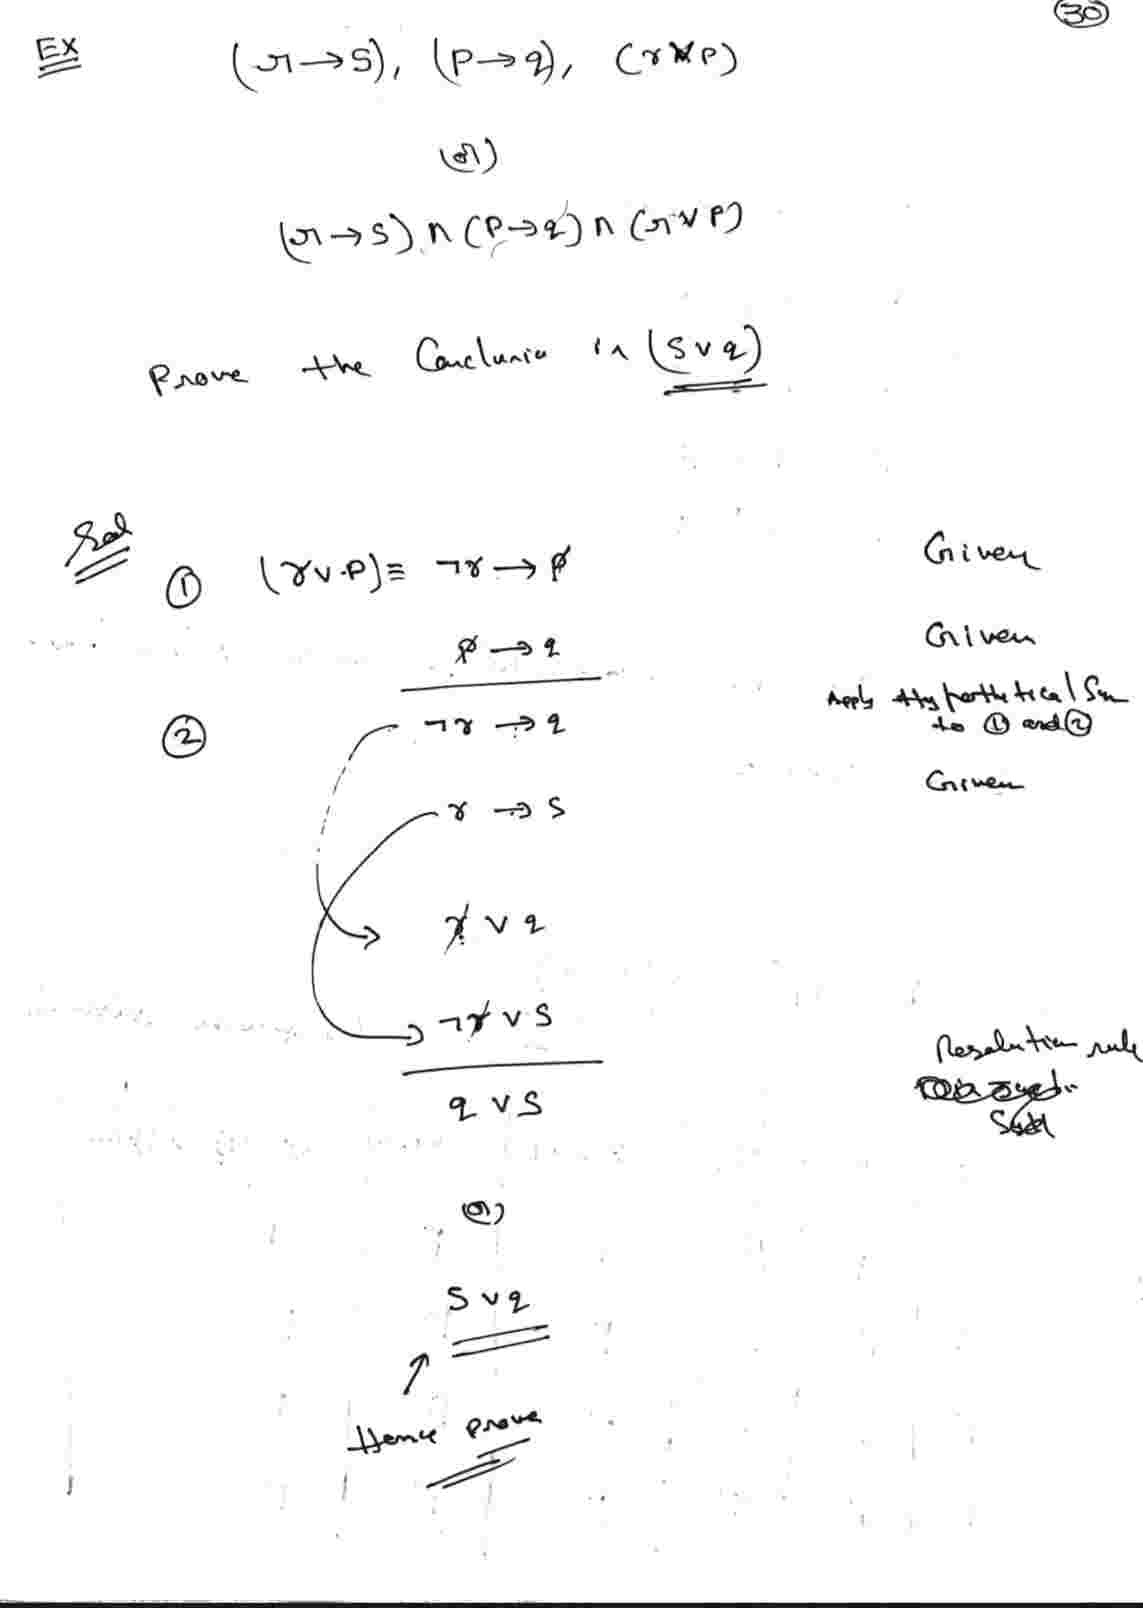 30
Ex (r→s), (p→q), (r∨p)
(or)
(r→s) ∩ (p→q) ∩ (r∨p)
Prove the Conclusio is (s∨q)
Sol
① (r∨p) ≡ ¬r → p Given
p → q Given
② ¬r → q Apply Hyporthetical Sm to ① and ②
r → s Given
r ∨ q
¬r ∨ s
q ∨ s Resolution rule
(or)
s ∨ q
↑
Hence prove